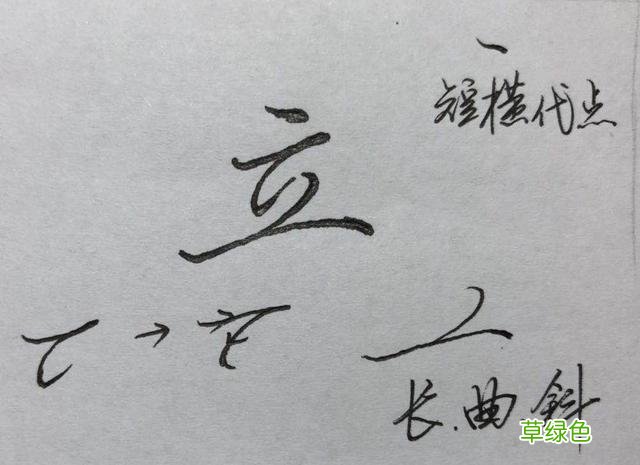 短横代点
立
长.曲.斜
草绿色